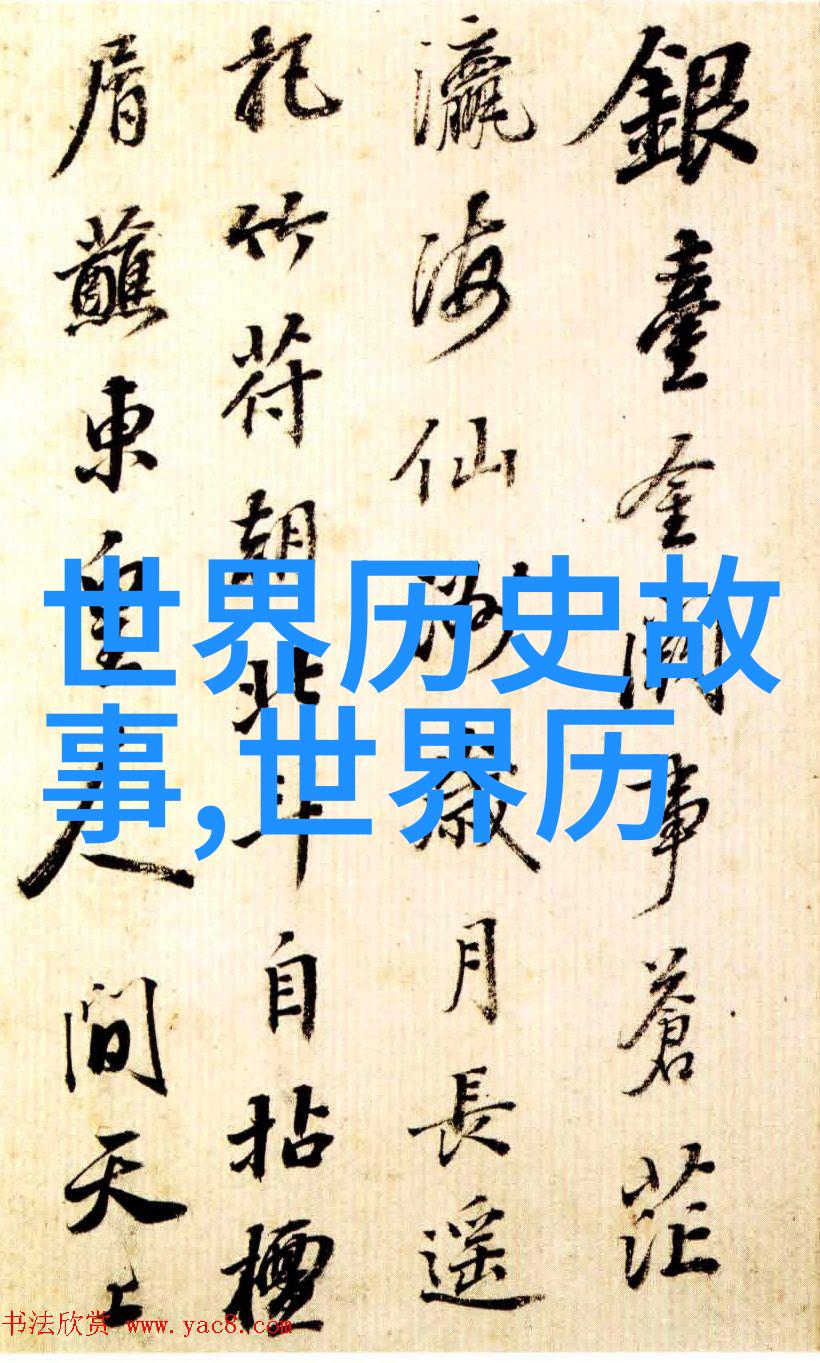 銀臺金闕事蒼茫
瀛海仙游歲月長遥
記竹符朝北斗自拈檀
屑蘸東皇人間天上
世界历史故
事,世界历
书法欣赏 www.yac8.com